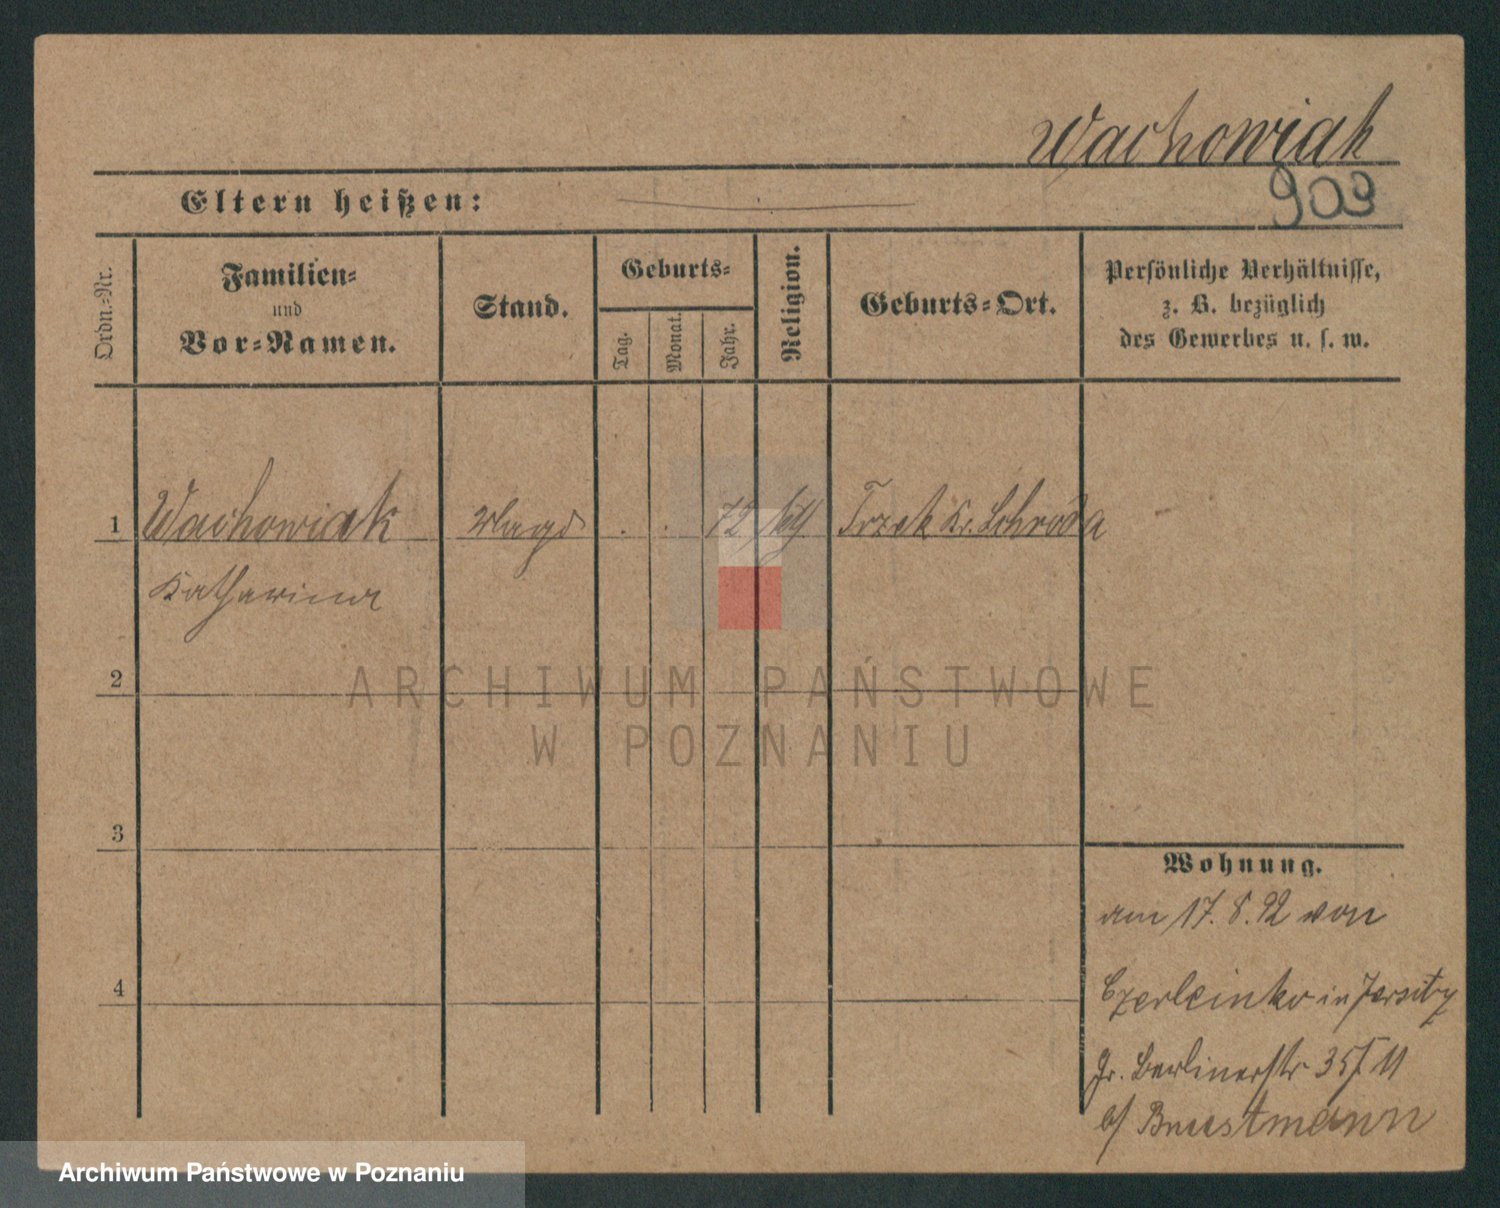 Wachowiak
903
Eltern heißen:
Ordn.-Nr.
Familien-
und
Vor-Namen.
Stand.
Geburts-
Tag.
Monat.
Jahr.
Religion.
Geburts-Ort.
Persönliche Verhältnisse,
z. B. bezüglich
des Gewerbes u. s. w.
1 Wachowiak Magd . . 72 Kr. Schroda
Katharina
2
3
4
Wohnung.
am 17. 8. 92 von
in Jersitz
gr. Berlinerstr 35
b/
ARCHIWUM PAŃSTWOWE
W POZNANIU
Archiwum Państwowe w Poznaniu